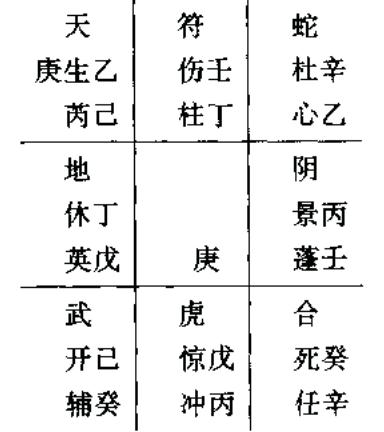 天 符 蛇
庚生乙 伤壬 杜辛
芮己 柱丁 心乙
地 阴
休丁 景丙
英戊 庚 蓬壬
武 虎 合
开己 惊戊 死癸
辅癸 冲丙 任辛